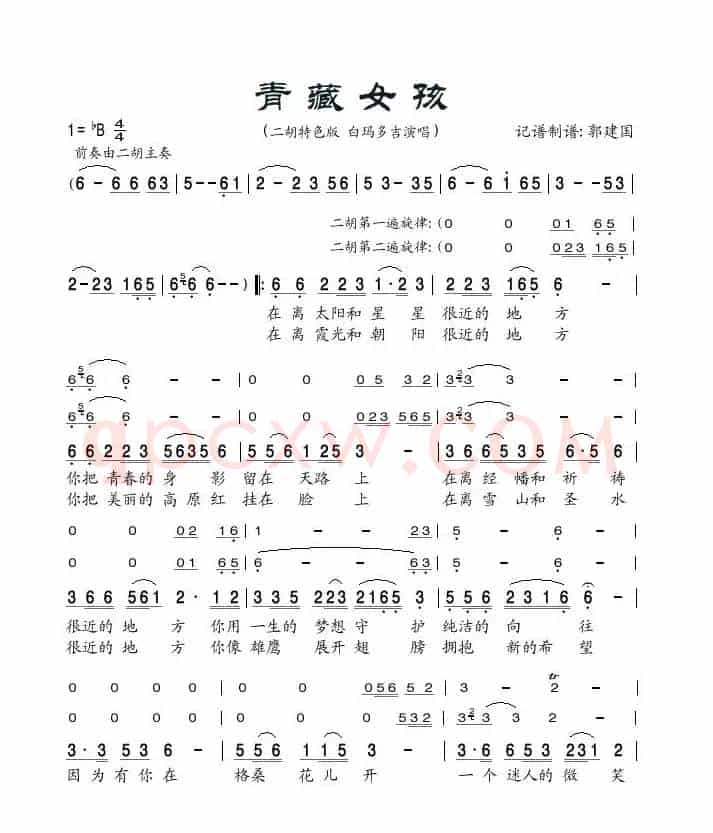 青藏女孩
1=♭B 4/4
(二胡特色版 白玛多吉演唱)
记谱制谱: 郭建国
前奏由二胡主奏
(6 - 6 6 63 | 5 - - 61 | 2 - 2 3 56 | 5 3 - 35 | 6 - 6 1 65 | 3 - - 53 |
二胡第一遍旋律: (0 0 01 65 |
二胡第二遍旋律: (0 0 023 165 |
2 - 23 165 | 6 6 - - ) ‖: 6 6 2 2 3 1 · 2 3 | 2 2 3 165 6 - |
在离 太阳和 星 星 很近的 地 方
在离 霞光和 朝 阳 很近的 地 方
6 6 - - | 0 0 05 32 | 3 3 - - |
6 6 - - | 0 0 023 565 | 3 3 - - |
6 6 2 2 3 5635 6 | 5 5 6 1 25 3 - | 3 6 6 535 6 · 5 |
你把 青春的 身 影 留在 天路 上 在离 经 幡和 祈 祷
你把 美丽的 高 原 红 挂在 脸 上 在离 雪 山和 圣 水
0 0 02 16 | 1 - - 23 | 5 - 6 - |
0 0 01 65 | 6 - - 63 | 5 - 6 - |
3 6 6 561 2 · 1 2 | 3 3 5 223 2165 3 | 5 5 6 2 3 1 6 6 - |
很近的 地 方 你用 一生的 梦想 守 护 纯洁的 向 往
很近的 地 方 你像 雄鹰 展开 翅 膀 拥抱 新的希 望
0 0 0 0 | 0 0 056 5 2 | 3 - 2 - |
0 0 0 0 | 0 0 0 532 | 3 3 3 2 - |
3 · 3 5 5 3 | 5 5 6 1 1 5 5 - | 3 · 5 6 5 3 231 2 |
因为有你在 格桑 花儿 开 一个 迷人的 微 笑